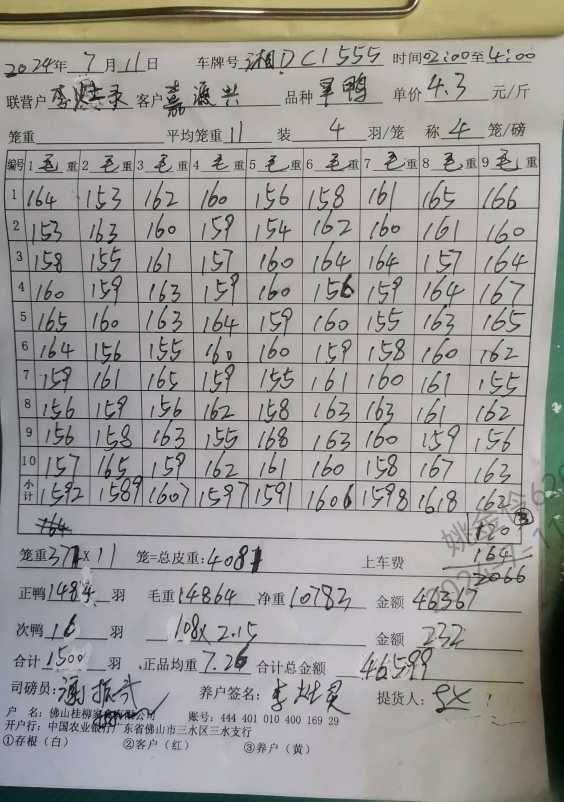 2024年 7 月 11 日 车牌号 湘DC1555 时间02:00至4:00
联营户 客户 嘉 兴 品种 旱鸭 单价 4.3 元/斤
笼重 平均笼重 11 装 4 羽/笼 称 4 笼/磅
编号 1 毛 重 2 毛 重 3 毛 重 4 毛 重 5 毛 重 6 毛 重 7 毛 重 8 毛 重 9 毛 重
1 164 153 162 160 156 158 161 165 166
2 153 163 160 159 154 162 160 161 160
3 158 155 161 157 160 164 164 157 164
4 160 159 163 159 160 156 159 164 167
5 165 160 163 164 159 160 155 163 165
6 164 156 155 160 160 159 158 160 162
7 159 161 165 159 155 161 160 161 155
8 156 159 156 162 158 163 163 161 162
9 156 158 163 155 168 163 160 159 156
10 157 165 159 162 161 160 158 167 163
小计 1592 1589 1607 1597 1591 1606 1598 1618 162
164 120
笼重371×11 笼=总皮重:4081 上车费 164
2066
正鸭1484羽 毛重14864 净重10783 金额 46367
次鸭 16 羽 108×2.15 金额 232
合计1500羽、正品均重 7.26 合计总金额 46599
司磅员: 养户签名: 提货人:
户 名:佛山桂柳 公司 账号:444 401 010 400 169 29
开户行:中国农业银行广东省佛山市三水区三水支行
①存根(白) ②客户(红) ③养户(黄)